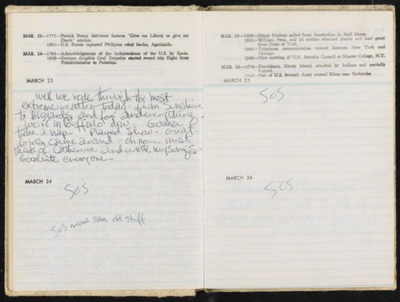 MAR. 23—1775—Patrick Henry delivered famous "Give me Liberty or give me
Death" oration.
1901—U.S. Forces captured Philippine rebel leader, Aguinaldo.
MAR. 24—1783—Acknowledgement of the Independence of the U.S. by Spain.
1929—German dirigible Graf Zeppelin started round trip flight from
Friedrichshafen to Palestine.
MARCH 23
Well we rode through the most
extreme weather today from sunshine
to blizzards and fog and everything
we're in Buffalo now. Gonna
take a nap - Played show - great
came around - oh now must
think of Catherine and write my songs -
Goodnite everyone -
MARCH 24
SOS
SOS means same old stuff
MAR. 25—1609—Henry Hudson sailed from Amsterdam in Half Moon.
Penn, and 24 settlers obtained charter and land grant
from Duke of York.
communication opened between New York and
Chicago.
1946—First meeting of U.N. Security Council at Hunter College, N.Y.
MAR. 26—1676—Providence, Rhode Island, attacked by Indians and partially
burned.
1945—Part of U.S. Seventh Army crossed Rhine near Karlsruhe.
MARCH 25
SOS
MARCH 26
SOS